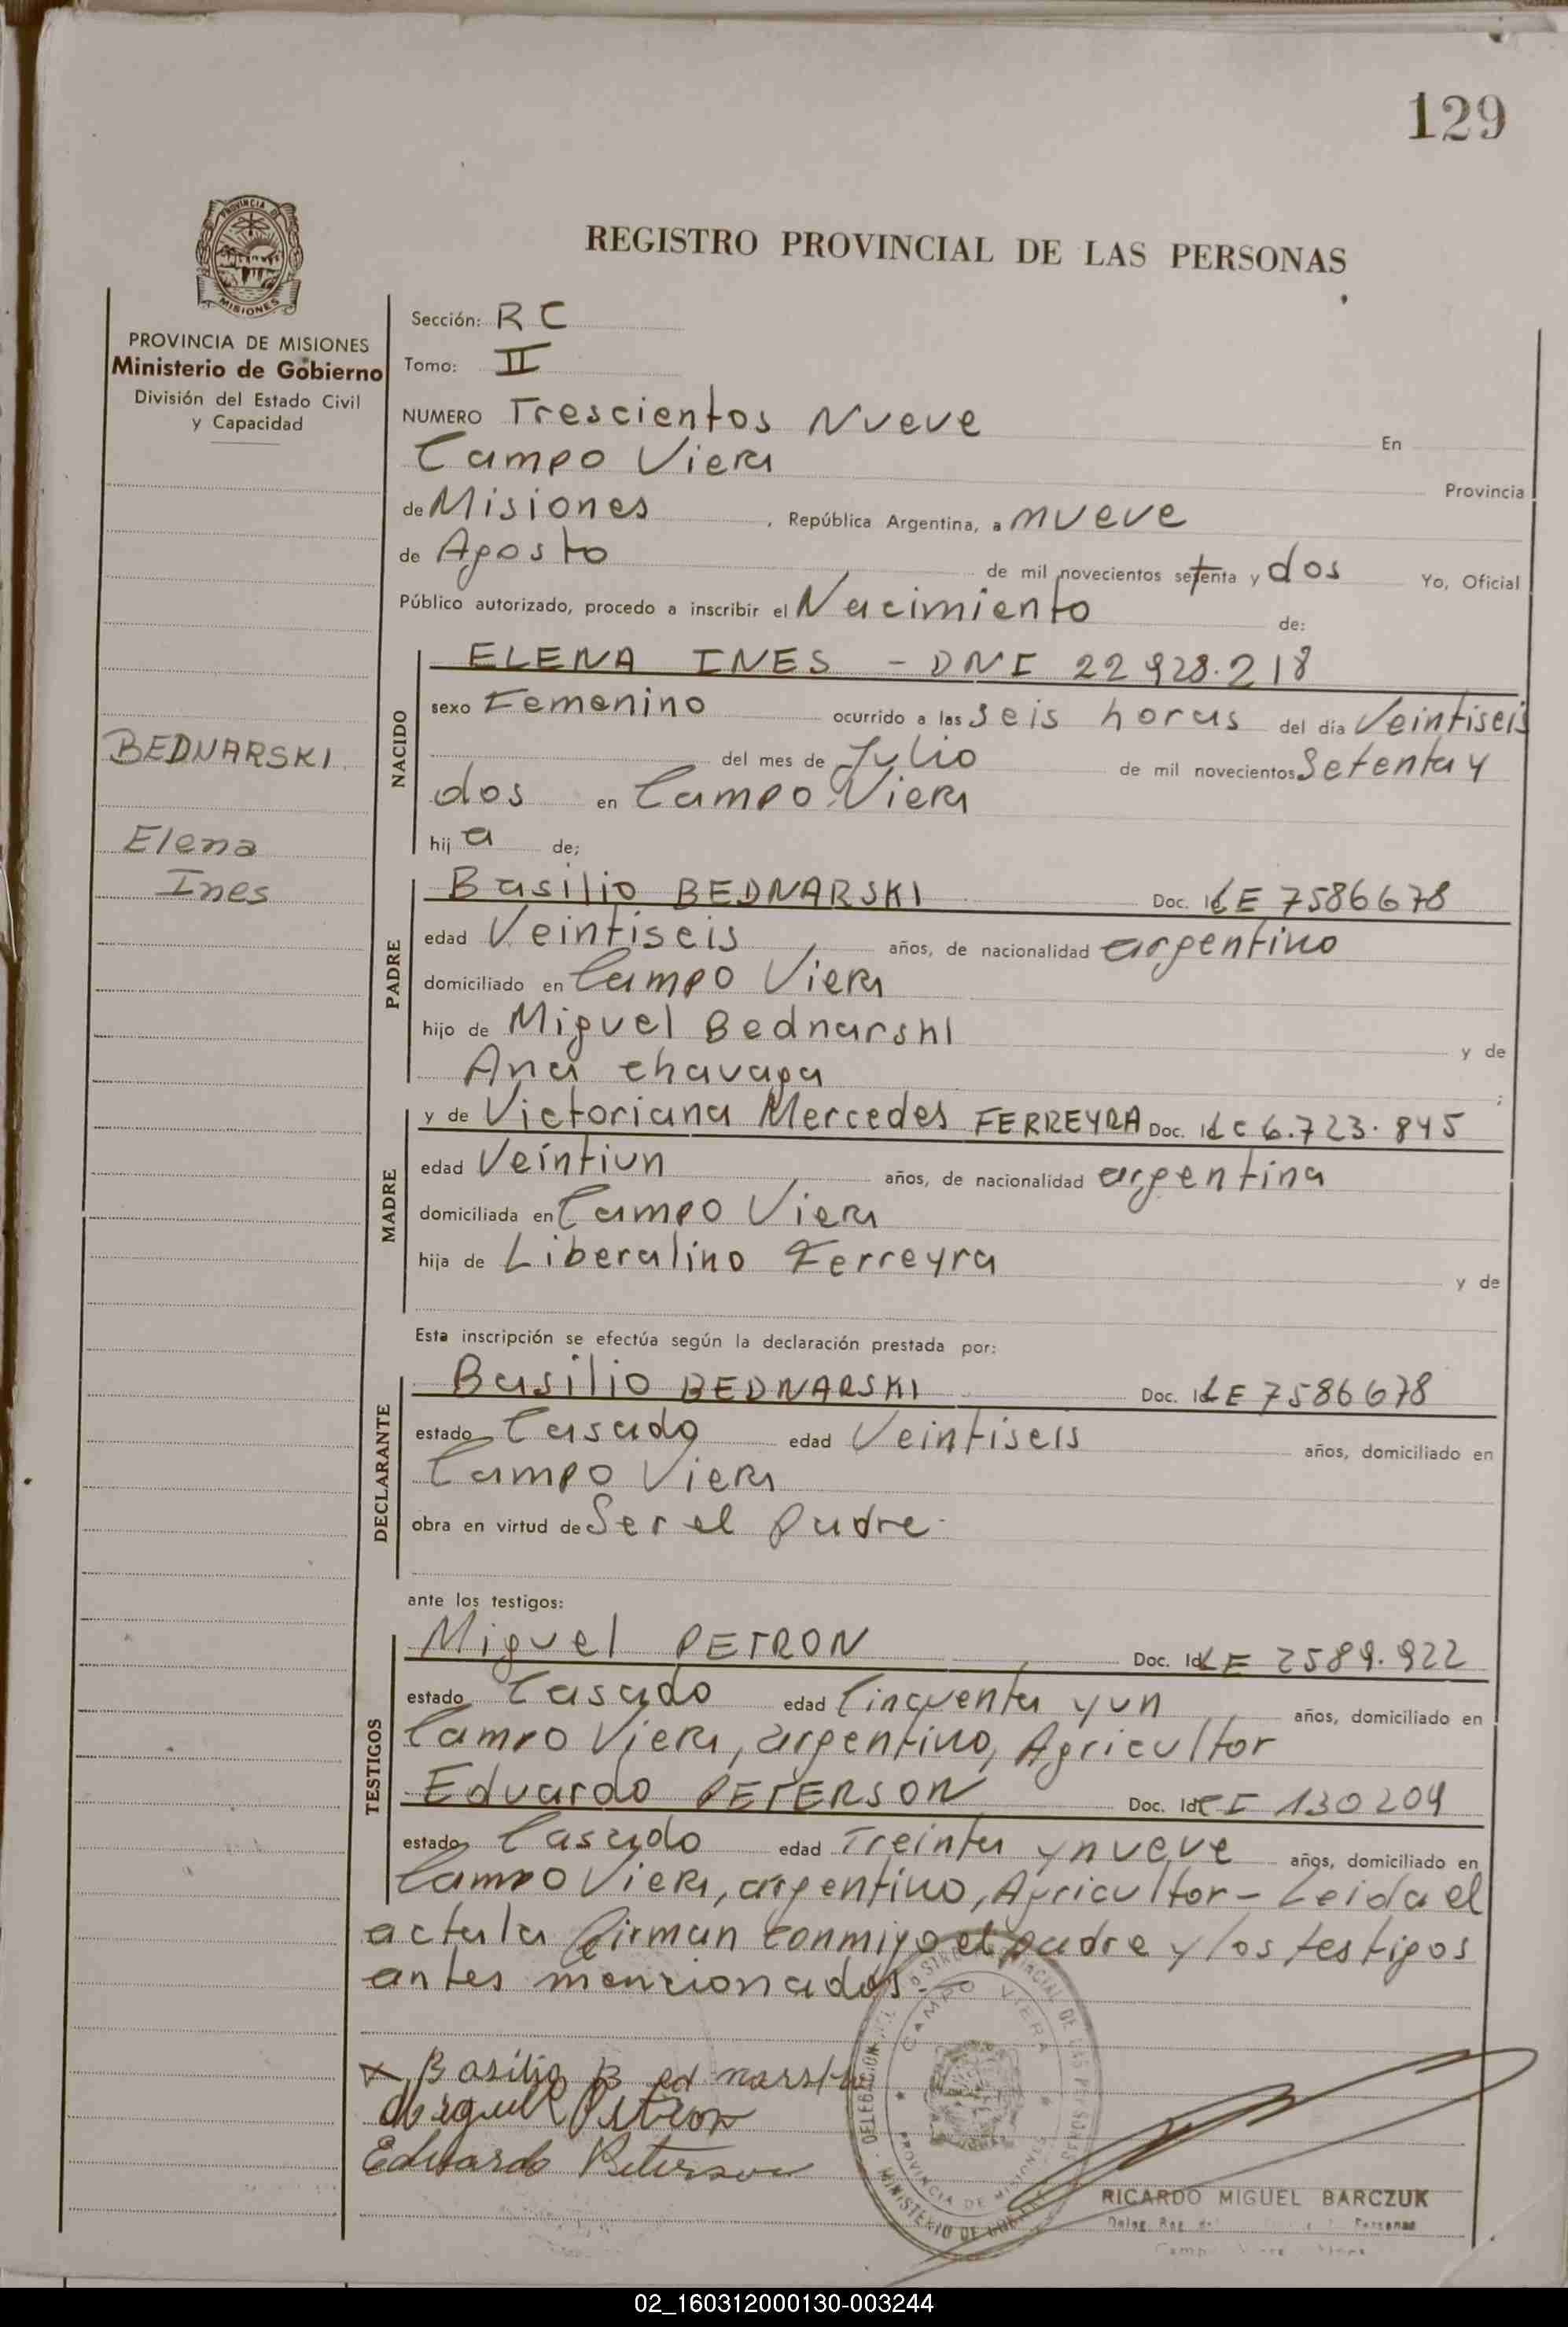 129
PROVINCIA DE
MISIONES
REGISTRO PROVINCIAL DE LAS PERSONAS
PROVINCIA DE MISIONES
Ministerio de Gobierno
División del Estado Civil
y Capacidad
BEDNARSKI
Elena
Ines
Sección: RC
Tomo: II
NUMERO Trescientos Nueve En
Campo Viera Provincia
de Misiones, República Argentina, a nueve
de Agosto de mil novecientos setenta y dos Yo, Oficial
Público autorizado, procedo a inscribir el Nacimiento de:
NACIDO
ELENA INES - DNI 22928.218
sexo Femenino ocurrido a las seis horas del día Veintiseis
del mes de Julio de mil novecientos Setenta y
dos en Campo Viera
hija de;
PADRE
Basilio BEDNARSKI Doc. Id LE 7586678
edad Veintiseis, años, de nacionalidad argentino
domiciliado en Campo Viera
hijo de Miguel Bednarski y de
Ana chavaga ;
MADRE
y de Victoriana Mercedes FERREYRA Doc. Id LC 6.723.845
edad Veintiun años, de nacionalidad argentina
domiciliada en Campo Viera
hija de Liberalino Ferreyra y de
Esta inscripción se efectúa según la declaración prestada por:
DECLARANTE
Basilio BEDNARSKI Doc. Id LE 7586678
estado Casado edad Veintiseis años, domiciliado en
Campo Viera
obra en virtud de Ser el padre-
ante los testigos:
TESTIGOS
Miguel PETRON Doc. Id LE 2589.922
estado Casado edad Cincuenta y un años, domiciliado en
Campo Viera, argentino, Agricultor
Eduardo PETERSON Doc. Id CI 130209
estado Casado edad Treinta y nueve años, domiciliado en
Campo Viera, argentino, Agricultor - Leida el
acta la firman conmigo el padre y los testigos
antes mencionados.-
x Basilio Bednarski
Miguel Petron
Eduardo Peterson
CAMPO VIERA
PROVINCIA DE MISIONES
DELEGACION
MINISTERIO DE
RICARDO MIGUEL BARCZUK
02_160312000130-003244